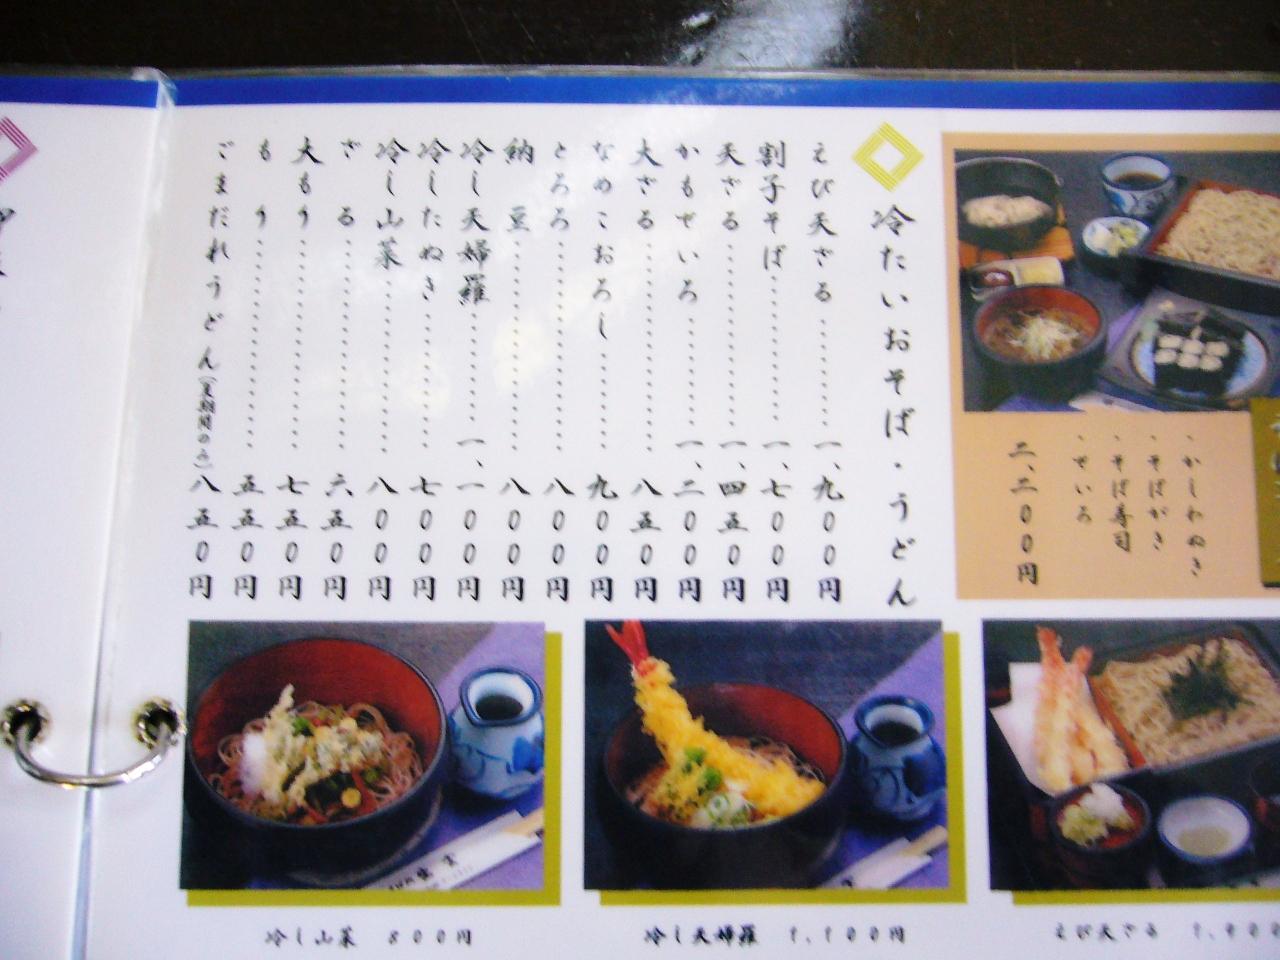 ・かしわぬき
・そばがき
・そば寿司
・せいろ
二、二〇〇円
冷たいおそば・うどん
えび天ざる 一、九〇〇円
割子そば 一、七〇〇円
天ざる 一、四五〇円
かもせいろ 一、二〇〇円
大ざる 八五〇円
なめこおろし 九〇〇円
とろろ 八〇〇円
納豆 八〇〇円
冷し天婦羅 一、一〇〇円
冷したぬき 七〇〇円
冷し山菜 八〇〇円
ざる 六五〇円
大もり 七五〇円
もり 五五〇円
ごまだれうどん(夏期間のみ) 八五〇円
冷し山菜 800円
冷し天婦羅 1,100円
えび天ざる 1,900